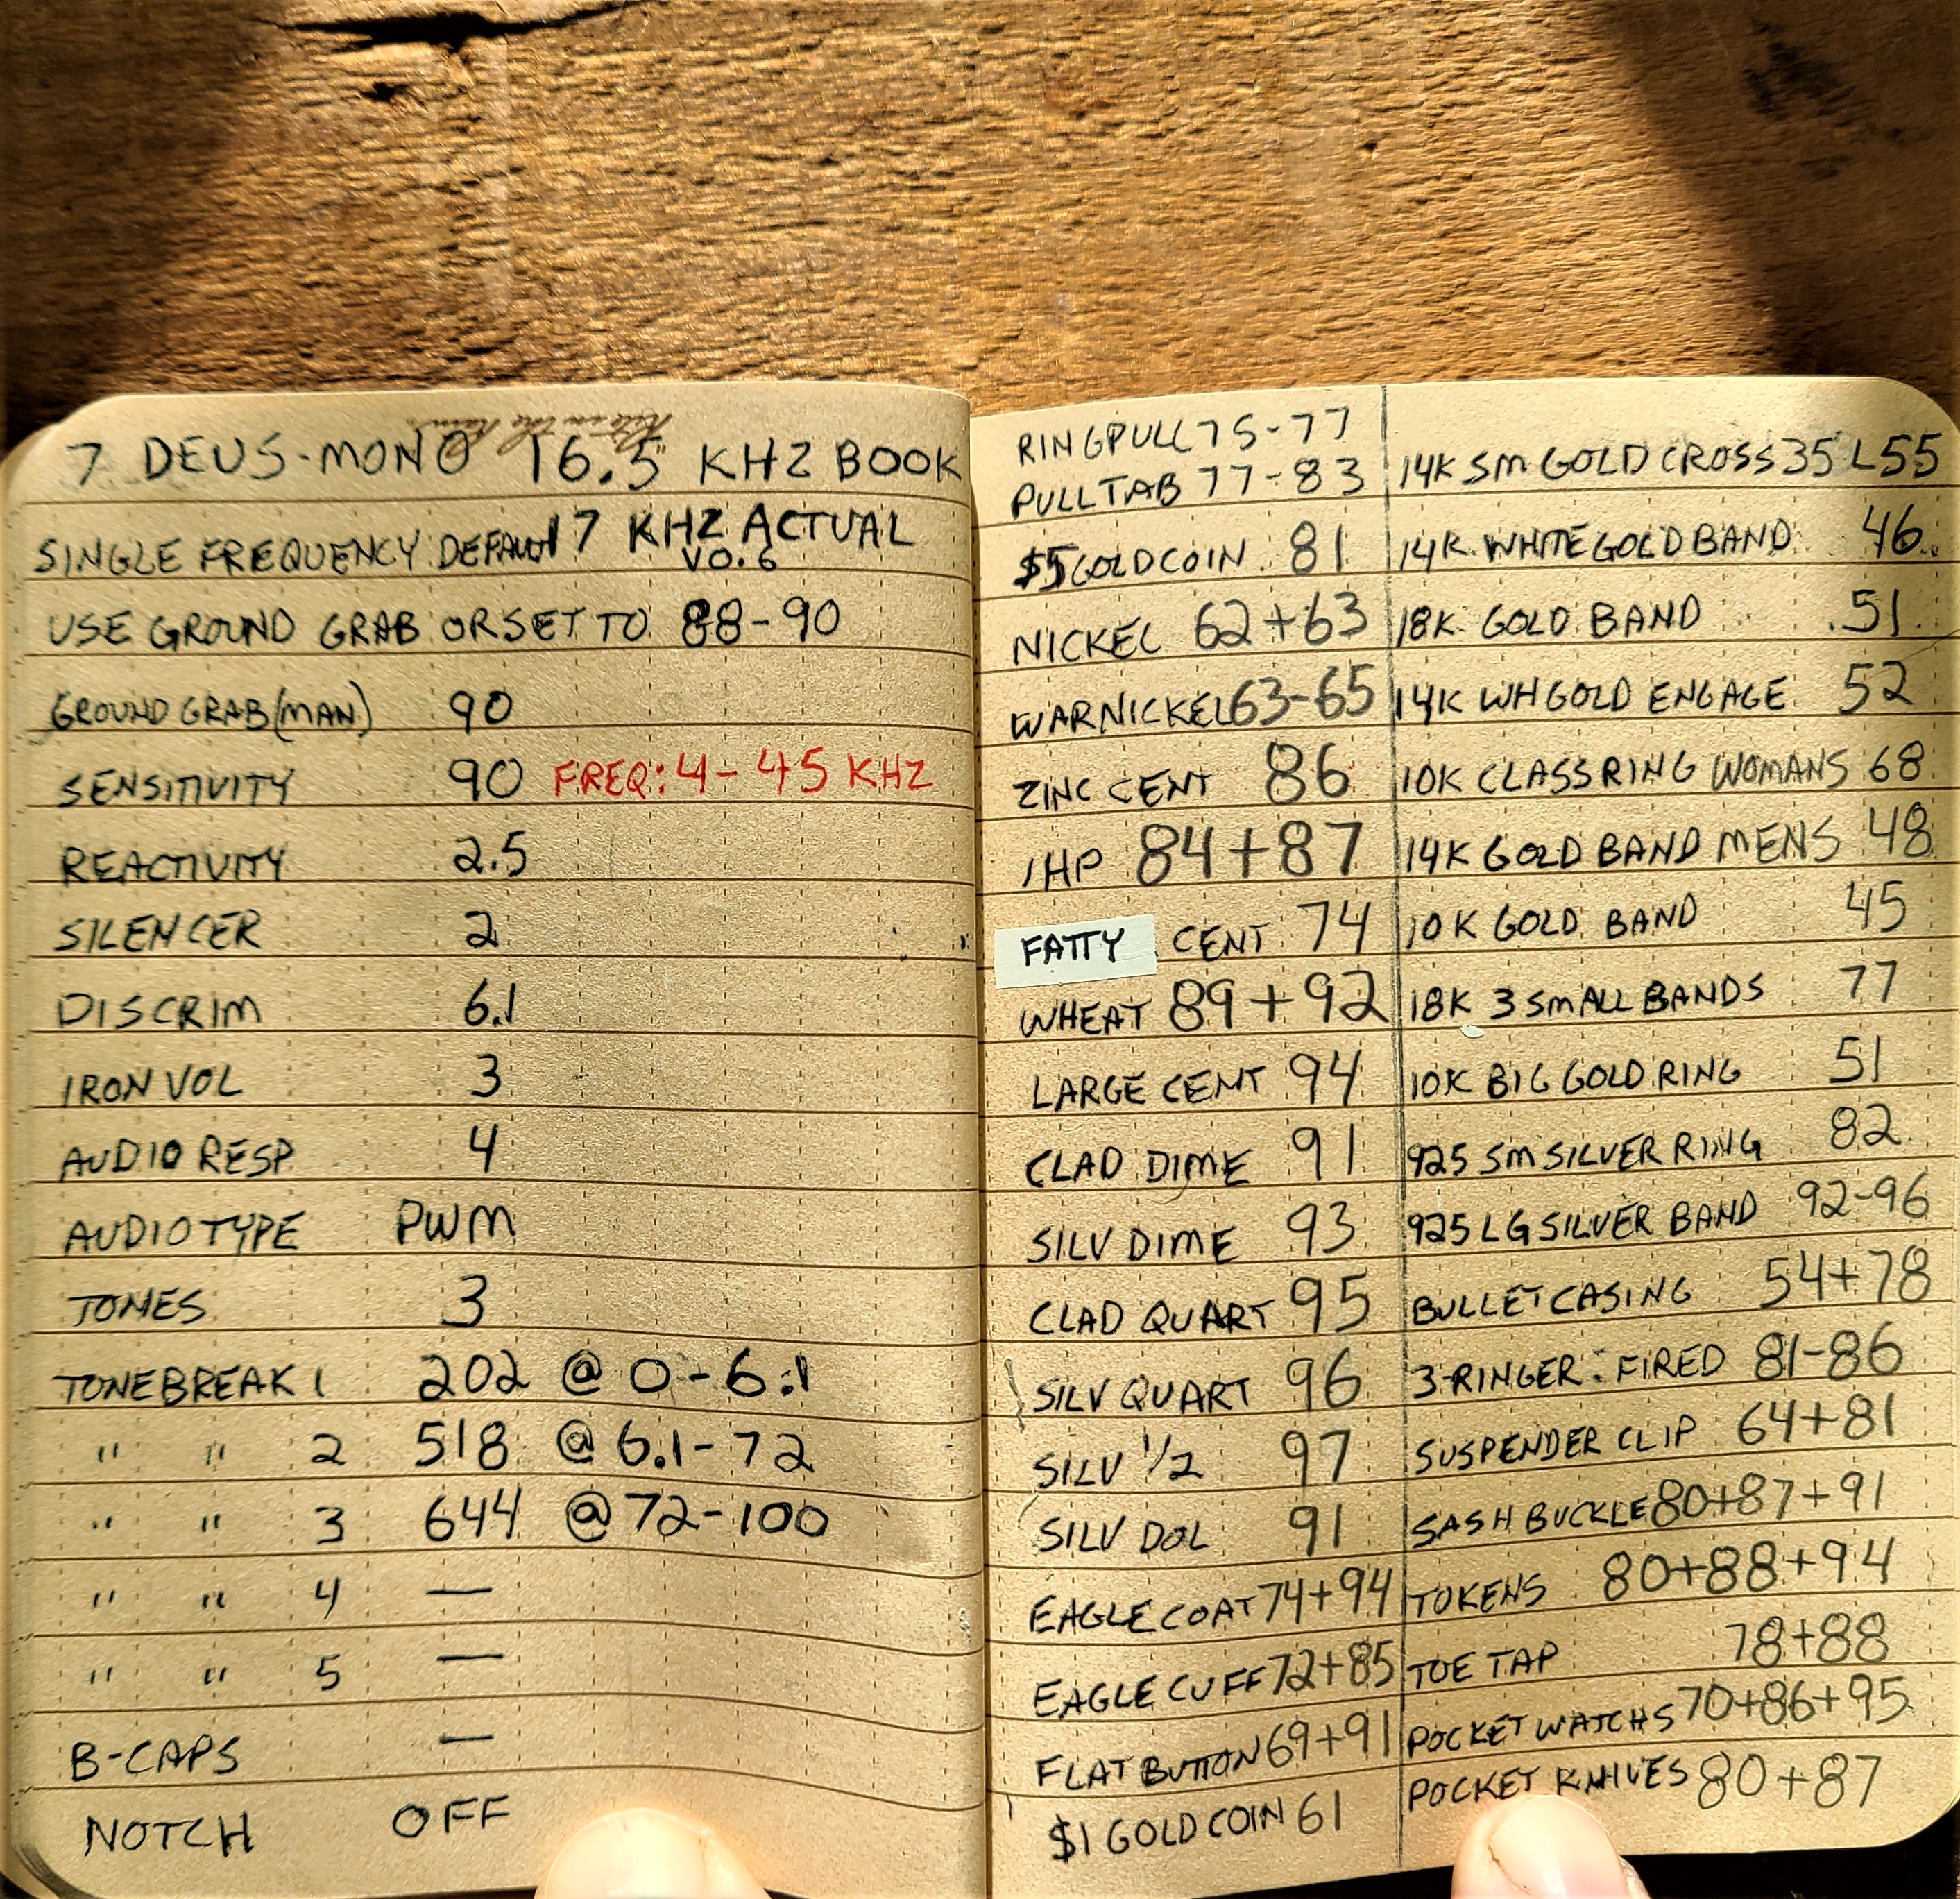 7 DEUS-MONO 16.5 KHZ BOOK
SINGLE FREQUENCY DEFAULT 17 KHZ ACTUAL
V0.6
USE GROUND GRAB OR SET TO 88-90
GROUND GRAB (MAN) 90
SENSITIVITY 90 FREQ: 4-45 KHZ
REACTIVITY 2.5
SILENCER 2
DISCRIM 6.1
IRON VOL 3
AUDIO RESP 4
AUDIO TYPE PWM
TONES 3
TONE BREAK 1 202 @ 0-6.1
" " 2 518 @ 6.1-72
" " 3 644 @ 72-100
" " 4 —
" " 5 —
B-CAPS —
NOTCH OFF
RINGPULL 75-77
PULLTAB 77-83
$5 GOLD COIN 81
NICKEL 62+63
WARNICKEL 63-65
ZINC CENT 86
IHP 84+87
FATTY CENT 74
WHEAT 89+92
LARGE CENT 94
CLAD DIME 91
SILV DIME 93
CLAD QUART 95
SILV QUART 96
SILV 1/2 97
SILV DOL 91
EAGLE COAT 74+94
EAGLE CUFF 72+85
FLAT BUTTON 69+91
$1 GOLD COIN 61
14K SM GOLD CROSS 35 L55
14K WHITE GOLD BAND 46
18K GOLD BAND 51
14K WH GOLD ENGAGE 52
10K CLASS RING WOMANS 68
14K GOLD BAND MENS 48
10K GOLD BAND 45
18K 3 SMALL BANDS 77
10K BIG GOLD RING 51
925 SM SILVER RING 82
925 LG SILVER BAND 92-96
BULLET CASING 54+78
3-RINGER: FIRED 81-86
SUSPENDER CLIP 64+81
SASH BUCKLE 80+87+91
TOKENS 80+88+94
TOE TAP 78+88
POCKET WATCHS 70+86+95
POCKET KNIVES 80+87